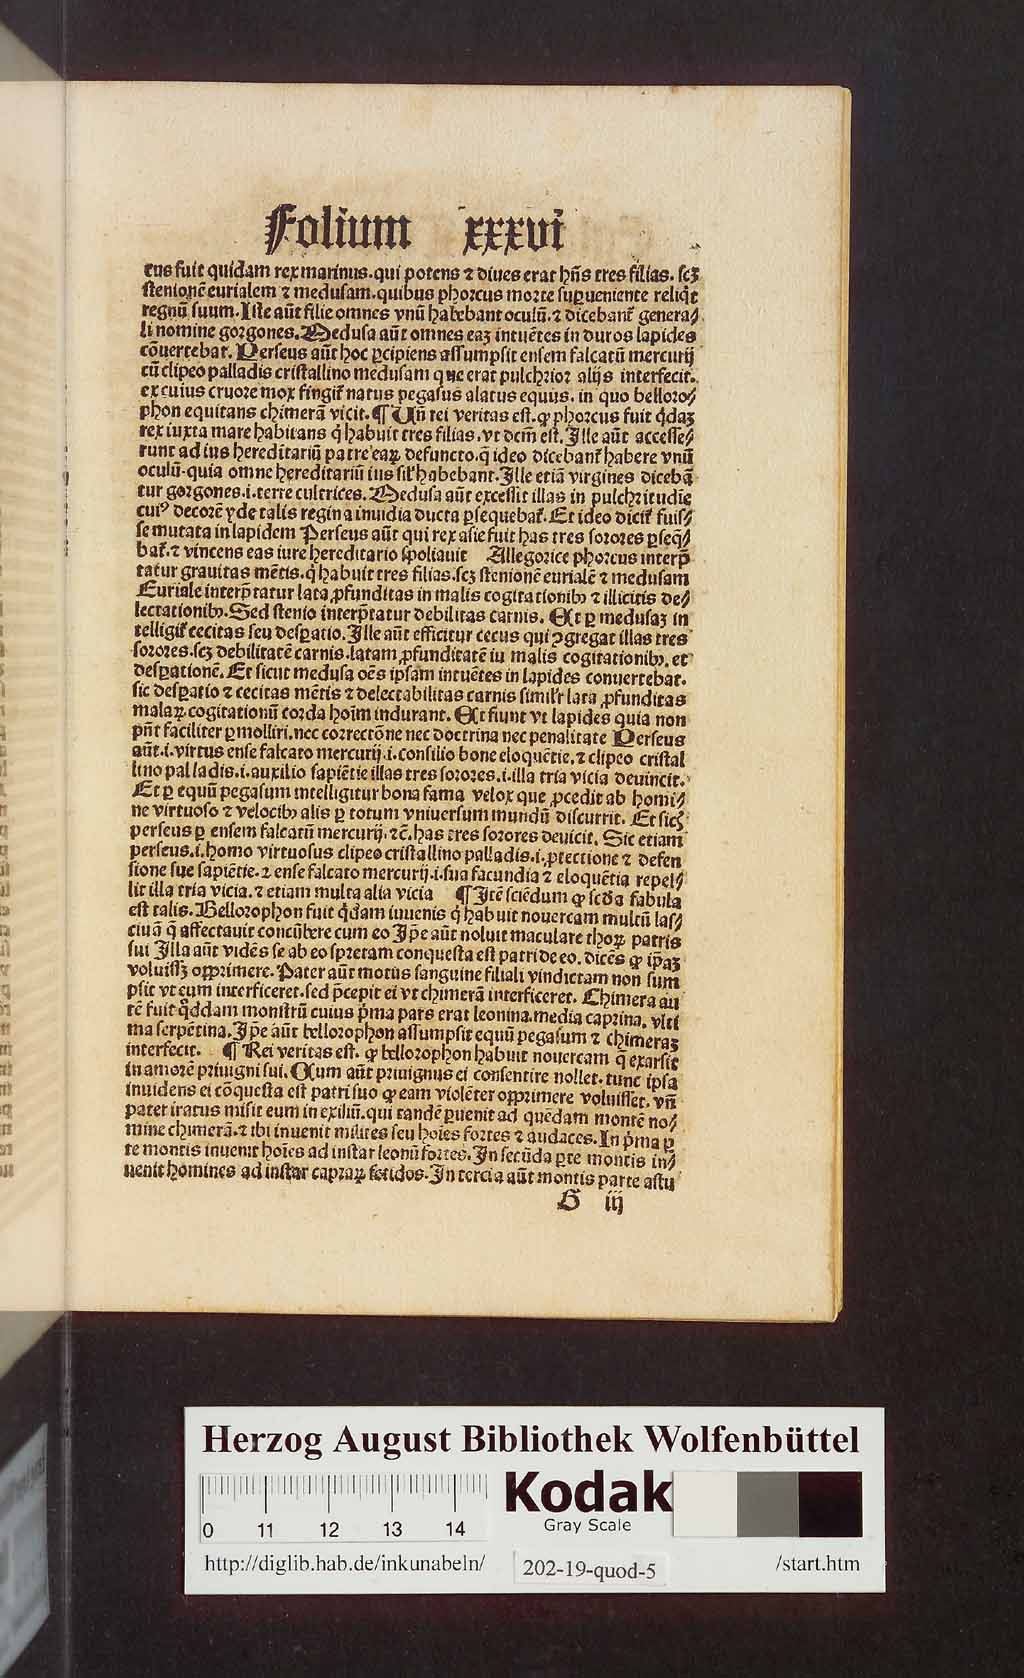 Folium xxxvi
cus fuit quidam rex marinus.qui potens ⁊ diues erat hn̄s tres filias. scꝫ
stenionē eurialem ⁊ medusam.quibus phorcus morte suꝑueniente reliq̇t
regnū suum.Iste aūt filie omnes vnū habebant oculū.⁊ dicebanť genera⸗
li nomine gorgones.Medusa aūt omnes eaꝫ intuētes in duros lapides
cōuertebat. Perseus aūt hoc ꝑcipiens assumpsit ensem falcatū mercurij
cū clipeo palladis cristallino medusam que erat pulchrior alijs interfecit.
ex cuius cruore mox fingiť natus pegasus alatus equus. in quo belloro⸗
phon equitans chimerā vicit. ¶ Un̄ rei veritas est.ꝙ phorcus fuit q̇daꝫ
rex iuxta mare habitans q̇ habuit tres filias.vt dcm̄ est. Ille aūt accesse⸗
runt ad ius hereditariū patre eaꝝ defuncto.q̇ ideo dicebanť habere vnū
oculū.quia omne hereditariū ius sil̓ habebant.Ille etiā virgines dicebā
tur gorgones.i.terre cultrices. Medusa aūt excessit illas in pulchritudīe
cuiꝰ decorē yde talis regina inuidia ducta ꝑsequebať. Et ideo diciť fuis⸗
se mutata in lapidem Perseus aūt qui rex asie fuit has tres sorores ꝑseq̄⸗
bať.⁊ vincens eas iure hereditario spoliauit Allegorice phorcus interp̄
tatur grauitas mētis.q̇ habuit tres filias.scꝫ stenionē eurialē ⁊ medusam
Euriale interp̄tatur lata ꝓfunditas in malis cogitationibꝰ ⁊ illicitis de⸗
lectationibꝰ.Sed stenio interp̄tatur debilitas carnis. Et ꝑ medusaꝫ in
telligiť cecitas seu desꝑatio. Ille aūt efficitur cecus qui ꝯgregat illas tres
sorores.scꝫ debilitatē carnis.latam ꝓfunditatē iu malis cogitationibꝰ. et
desꝑationē. Et sicut medusa oēs ipsam intuētes in lapides conuertebat.
sic desꝑatio ⁊ cecitas mētis ⁊ delectabilitas carnis simil̓r lata ꝓfunditas
malaꝝ cogitationū corda hoīm indurant. Et fiunt vt lapides quia non
pn̄t faciliter ꝑmolliri.nec correctōne nec doctrina nec penalitate Perseus
aūt.i.virtus ense falcato mercurij.i.consilio bone eloquētie.⁊ clipeo cristal
lino palladis.i.auxilio sapiētie illas tres sorores.i.illa tria vicia deuincit.
Et ꝑ equū pegasum intelligitur bona fama velox que ꝓcedit ab homi⸗
ne virtuoso ⁊ velocibꝰ alis ꝑ totum vniuersum mundū discurrit. Et sicꝫ
perseus ꝑ ensem falcatū mercurij.⁊c̄.has tres sorores deuicit. Sic etiam
perseus.i.homo virtuosus clipeo cristallino palladis.i.ꝓtectione ⁊ defen
sione sue sapiētie.⁊ ense falcato mercurij.i.sua facundia ⁊ eloquētia repel⸗
lit illa tria vicia.⁊ etiam multa alia vicia ¶ Itē sciēdum ꝙ scḋa fabula
est talis. Bellorophon fuit q̇dam iuuenis q̇ habuit nouercam multū las⸗
ciuā q̄ affectauit concūbere cum eo Ip̄e aūt noluit maculare thoꝝ patris
sui Illa aūt vidēs se ab eo spretam conquesta est patri de eo. dicēs ꝙ ip̄aꝫ
voluissꝫ opprimere. Pater aūt motus sanguine filiali vindictam non sum
psit vt eum interficeret.sed p̄cepit ei vt chimerā interficeret. Chimera au
tē fuit q̇ddam monstrū cuius p̄ma pars erat leonina.media caprina. vlti
ma serpētina.Ip̄e aūt bellorophon assumpsit equū pegasum ⁊ chimeraꝫ
interfecit. ¶ Rei veritas est. ꝙ bellorophon habuit nouercam q̄ exarsit
in amorē priuigni sui. Cum aūt priuignus ei consentire nollet.tunc ipsa
inuidens ei cōquesta est patri suo ꝙ eam violēter opprimere voluisset. vn̄
pater iratus misit eum in exiliū.qui tandē ꝑuenit ad quēdam montē no⸗
mine chimerā.⁊ ibi inuenit milites seu hoīes fortes ⁊ audaces.In p̄ma ꝑ
te montis inuenit hoīes ad instar leonū fortes. In secūda ꝑte montis in⸗
uenit homines ad instar capraꝝ fetidos.In tercia aūt montis parte astu
G iij
Herzog August Bibliothek Wolfenbüttel
0 11 12 13 14
Kodak
Gray Scale
http://diglib.hab.de/inkunabeln/ 202-19-quod-5 /start.htm